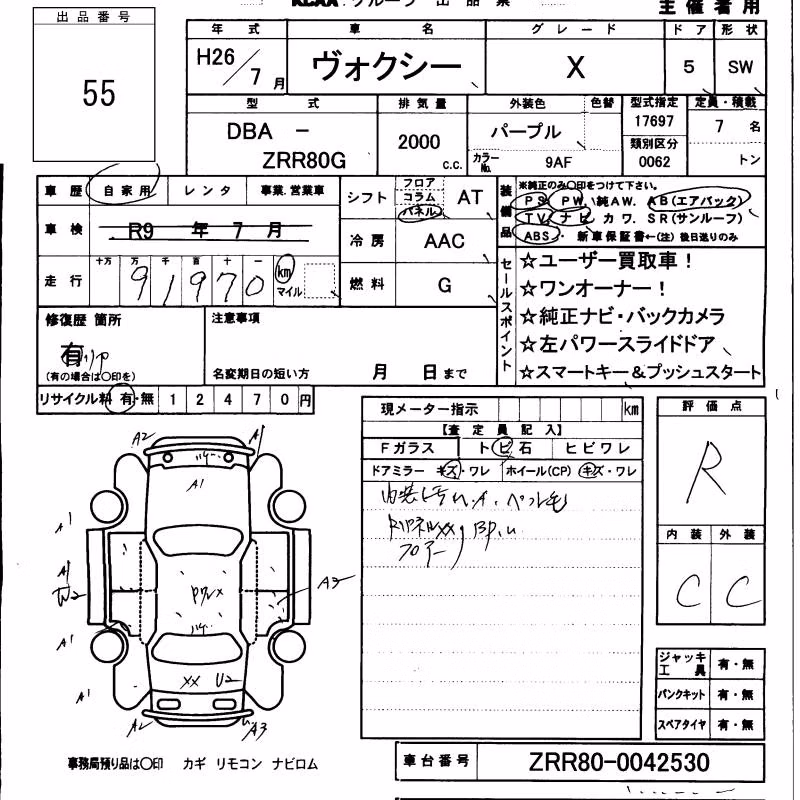 主催者用
出品番号
55
年式 車名 グレード ドア 形状
H26/7月 ヴォクシー X 5 SW
型式 排気量 外装色 色替 型式指定 定員・積載
DBA － ZRR80G
2000 c.c.
パープル
カラーNo. 9AF
17697
類別区分
0062
7名
トン
車歴 自家用 レンタ 事業.営業車
車検 R9年7月
走行 十万 万 千 百 十 一
91970 km マイル
シフト フロア コラム パネル AT
冷房 AAC
燃料 G
装備品
※純正のみ○印をつけて下さい。
PS. PW. 純AW. AB(エアバック)
TV. ナビ カワ. SR(サンルーフ)
ABS. ・ 新車保証書←(注)後日送りのみ
セールスポイント
☆ユーザー買取車！
☆ワンオーナー！
☆純正ナビ・バックカメラ
☆左パワースライドドア
☆スマートキー＆プッシュスタート
修復歴 箇所
有
(有の場合は○印を)
注意事項
名変期日の短い方 月 日まで
リサイクル料 有・無 12470円
現メーター指示 km
【査定員記入】
Fガラス トビ石 ヒビワレ
ドアミラー キズ・ワレ ホイール(CP) キズ・ワレ
評価点
R
内装 外装
C C
A2 A1
A1
A1
A1
U2
A3
A1
A1
XX U2
A2 A3
ジャッキ工具 有・無
パンクキット 有・無
スペアタイヤ 有・無
事務局預り品は○印 カギ リモコン ナビロム
車台番号 ZRR80-0042530